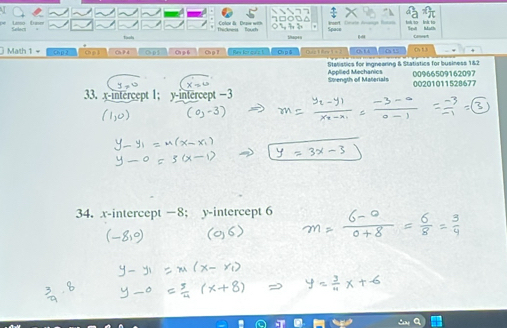 Color & Thickness
Draw with Touch
Insert Space
Ink to Text
Ink to Math
Tools
Shapes
Edit
Convert
Math 1
Statistics for ingnearing & Statistics for business 1&2
Applied Mechanics 00966509162097
Strength of Materials 00201011528677
y=0 x=0
33. x-intercept 1; y-intercept −3
(1,0) (0,-3) ⇒ m = y2-y1 / x2-x1 = -3-0 / 0-1 = -3 / -1 = 3
y-y1 = m(x-x1)
y-0 = 3(x-1) ⇒ y = 3x-3
34. x-intercept −8; y-intercept 6
(-8,0) (0,6) m = 6-0 / 0+8 = 6/8 = 3/4
y-y1 = m(x-x1)
3/4 · 8 y-0 = 3/4 (x+8) ⇒ y = 3/4 x + 6